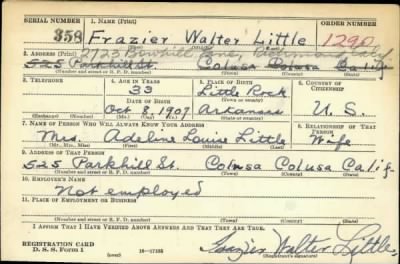 SERIAL NUMBER 1. NAME (Print) ORDER NUMBER
358 Frazier Walter Little 1290
2. ADDRESS (Print) 2723
525 Parkhill St. Colusa Colusa Calif.
(Number and street or R. F. D. number) (Town) (County) (State)
3. TELEPHONE 4. AGE IN YEARS 5. PLACE OF BIRTH 6. COUNTRY OF CITIZENSHIP
33 Little Rock
DATE OF BIRTH (Town or county)
Oct 8, 1907 Arkansas U. S.
(Exchange) (Number) (Mo.) (Day) (Yr.) (State or country)
7. NAME OF PERSON WHO WILL ALWAYS KNOW YOUR ADDRESS 8. RELATIONSHIP OF THAT PERSON
Mrs. Adeline Louise Little Wife
(Mr., Mrs., Miss) (First) (Middle) (Last)
9. ADDRESS OF THAT PERSON
525 Parkhill St. Colusa Colusa Calif.
(Number and street or R. F. D. number) (Town) (County) (State)
10. EMPLOYER'S NAME
Not employed
11. PLACE OF EMPLOYMENT OR BUSINESS
(Number and street or R. F. D. number) (Town) (County) (State)
I AFFIRM THAT I HAVE VERIFIED ABOVE ANSWERS AND THAT THEY ARE TRUE.
REGISTRATION CARD
D. S. S. Form 1 (over) 16-17105 Frazier Walter Little
(Registrant's signature)